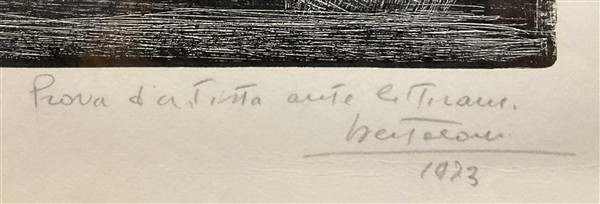 Prova d'artista ante litteram.
1973